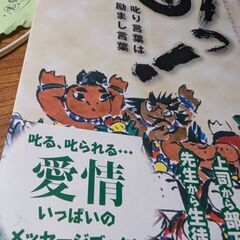 っ!
叱り言葉は
励まし言葉
叱る、叱られる…
愛情
いっぱいの
上司から部
先生から生徒